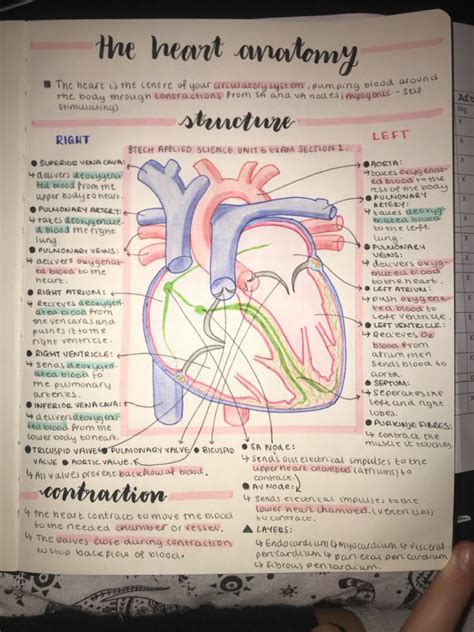 the heart anatomy
■ The heart is the centre of your circulatory system, pumping blood around
the body through contractions from SA and VA nodes (myogenic - self
stimulating)
structure
RIGHT
LEFT
BTECH APPLIED SCIENCE UNIT 5 EXAM SECTION 1.
● SUPERIOR VENA CAVA:
↳ delivers deoxygena-
ted blood from the
upper body to heart.
● PULMONARY ARTERY:
↳ takes deoxygenate-
d blood the right
lung.
● PULMONARY VEINS:
↳ delivers oxygenat-
ed blood to the
heart.
● RIGHT ATRIUM:
↳ Recieves deoxygen-
ated blood from
the venacavas and
pushes it to the
right ventricle.
● RIGHT VENTRICLE:
↳ sends deoxygen-
ated blood to
the pulmonary
arteries.
● INFERIOR VENA CAVA:
↳ delivers deoxygenat-
ed blood from the
lower body to heart.
● AORTA:
↳ takes oxygenat-
ed blood to the
rest of the body
● PULMONARY
ARTERY:
↳ takes deoxyge-
nated blood
to the left
lung.
● PULMONARY
VEINS:
↳ delivers oxyg-
enated blood
to the heart.
● LEFT ATRIUM:
↳ push oxygena-
ted blood to
left ventricle.
● LEFT VENTRICLE:
↳ Recieves O2
blood from
atrium then
sends blood to
aorta.
● SEPTUM:
↳ Seperates the
left and right
lobes.
● PURKINJE FIBRES:
↳ contract the
muscle it touches
● TRICUSPID VALVE ● PULMONARY VALVE ● BICUSPID
VALVE ● AORTIC VALVE
↳ All valves prevent backflow of blood.
● SA NODE:
↳ Sends out electrical impulses to the
upper heart chambers (atriums) to
contract.
● AV NODE:
↳ Sends electrical impulses to the
lower heart chambers (ventricles)
to contract.
▲ LAYERS:
↳ Endocardium ↳ Myocardium ↳ visceral
pericardium ↳ parietal pericardium
↳ fibrous pericardium.
contraction
↳ the heart contracts to move the blood
to the needed chamber or vessel.
↳ The valves close during contraction
to stop backflow of blood.